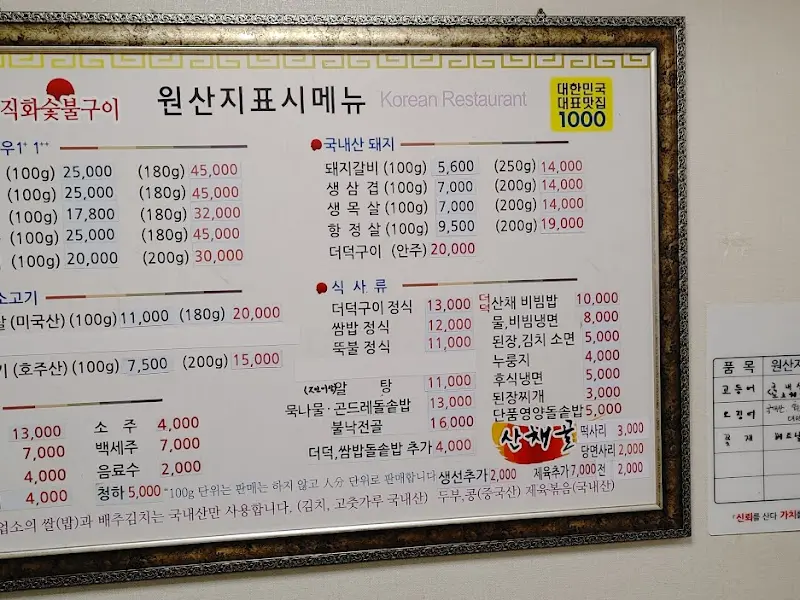 직화숯불구이
원산지표시메뉴 Korean Restaurant
대한민국
대표맛집
1000
우1⁺ 1⁺⁺
(100g) 25,000 (180g) 45,000
(100g) 25,000 (180g) 45,000
(100g) 17,800 (180g) 32,000
(100g) 25,000 (180g) 45,000
(100g) 20,000 (200g) 30,000
소고기
(미국산) (100g) 11,000 (180g) 20,000
(호주산) (100g) 7,500 (200g) 15,000
13,000
7,000
4,000
4,000
소 주 4,000
백세주 7,000
음료수 2,000
청하 5,000
국내산 돼지
돼지갈비 (100g) 5,600 (250g) 14,000
생 삼 겹 (100g) 7,000 (200g) 14,000
생 목 살 (100g) 7,000 (200g) 14,000
항 정 살 (100g) 9,500 (200g) 19,000
더덕구이 (안주) 20,000
식 사 류
더덕구이 정식 13,000
쌈밥 정식 12,000
뚝불 정식 11,000
알 탕 11,000
묵나물·곤드레돌솥밥 13,000
불낙전골 16,000
더덕,쌈밥돌솥밥 추가 4,000
더덕 산채 비빔밥 10,000
물,비빔냉면 8,000
된장,김치 소면 5,000
누룽지 4,000
후식냉면 5,000
된장찌개 3,000
단품영양돌솥밥 5,000
산채골
떡사리 3,000
당면사리 2,000
생선추가 2,000 제육추가 7,000 전 2,000
*100g 단위는 판매는 하지 않고 人分 단위로 판매합니다
업소의 쌀(밥)과 배추김치는 국내산만 사용합니다, (김치, 고춧가루 국내산) 두부,콩(중국산) 제육볶음(국내산)
품 목 원산지
고등어
신뢰를 산다 가치를